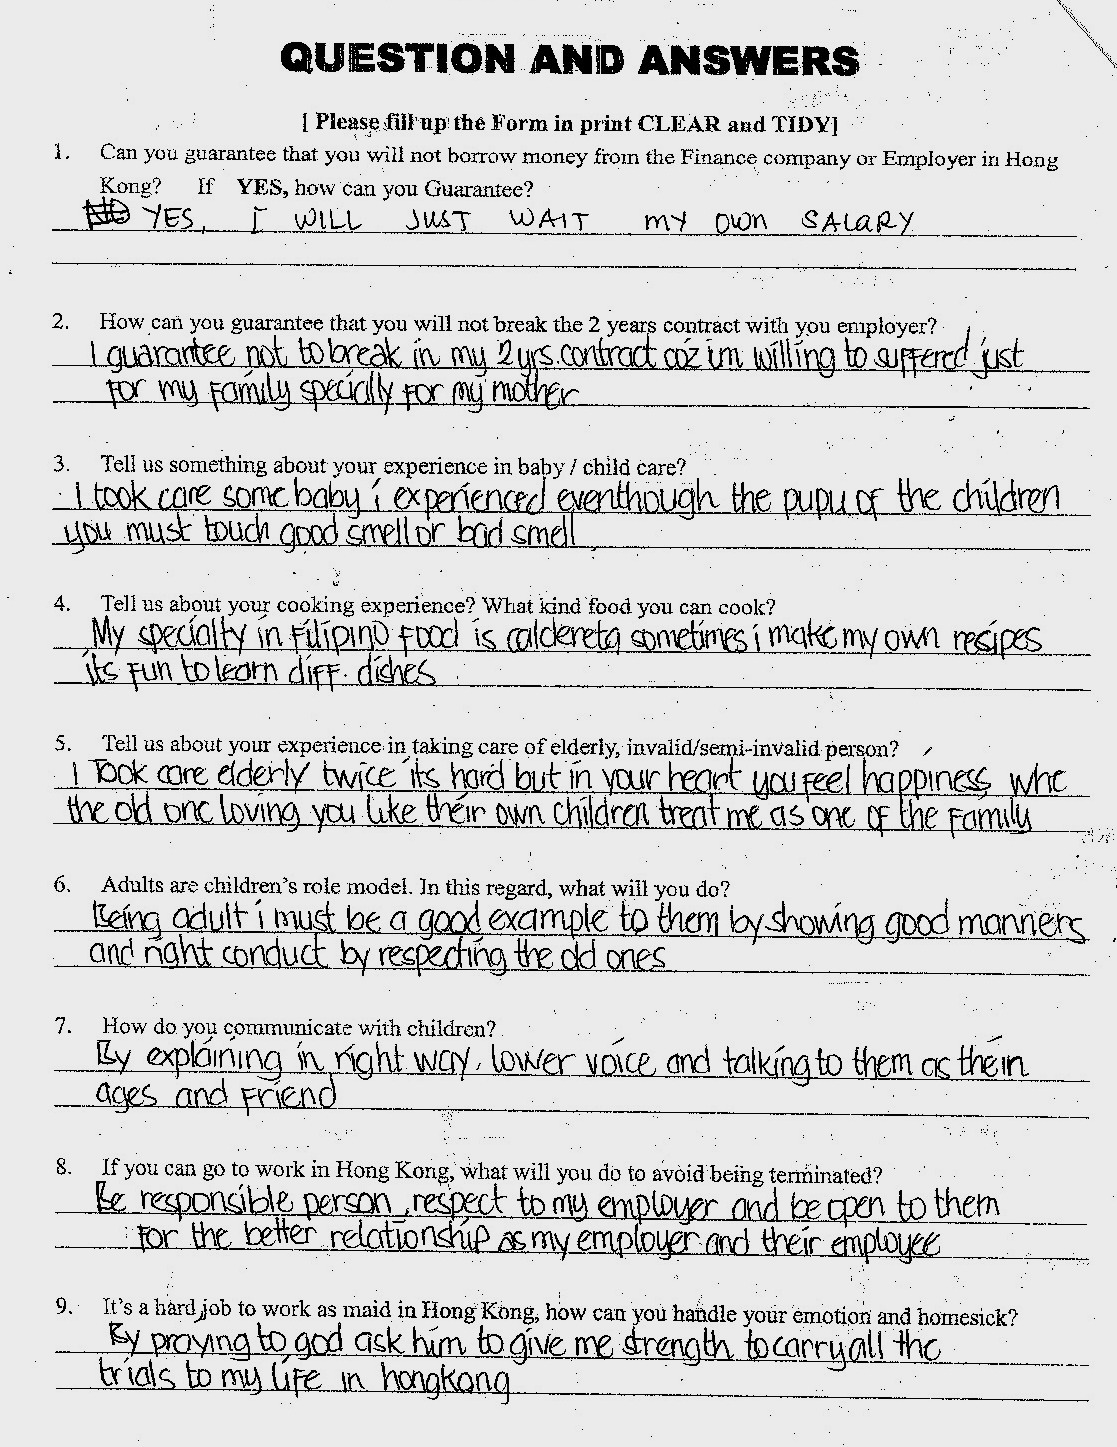 QUESTION AND ANSWERS
[ Please fill up the Form in print CLEAR and TIDY]
1. Can you guarantee that you will not borrow money from the Finance company or Employer in Hong
Kong? If YES, how can you Guarantee?
YES, I WILL JUST WAIT MY OWN SALARY
2. How can you guarantee that you will not break the 2 years contract with you employer?
I guarantee not to break in my 2yrs. contract coz im willing to suffered just
for my family specially for my mother
3. Tell us something about your experience in baby / child care?
I took care some baby i experienced eventhough the pupu of the children
you must touch good smell or bad smell
4. Tell us about your cooking experience? What kind food you can cook?
My specialty in Filipino food is caldereta sometimes i make my own resipes
its fun to learn diff. dishes
5. Tell us about your experience in taking care of elderly, invalid/semi-invalid person?
I Took care elderly twice its hard but in your heart you feel happiness whe
the old one loving you like their own children treat me as one of the family
6. Adults are children's role model. In this regard, what will you do?
Being adult i must be a good example to them by showing good manners
and right conduct by respecting the old ones
7. How do you communicate with children?
By explaining in right way, lower voice and talking to them as their
ages and friend
8. If you can go to work in Hong Kong, what will you do to avoid being terminated?
Be responsible person, respect to my employer and be open to them
for the better relationship as my employer and their employee
9. It's a hard job to work as maid in Hong Kong, how can you handle your emotion and homesick?
By praying to god ask him to give me strength to carry all the
trials to my life in hongkong